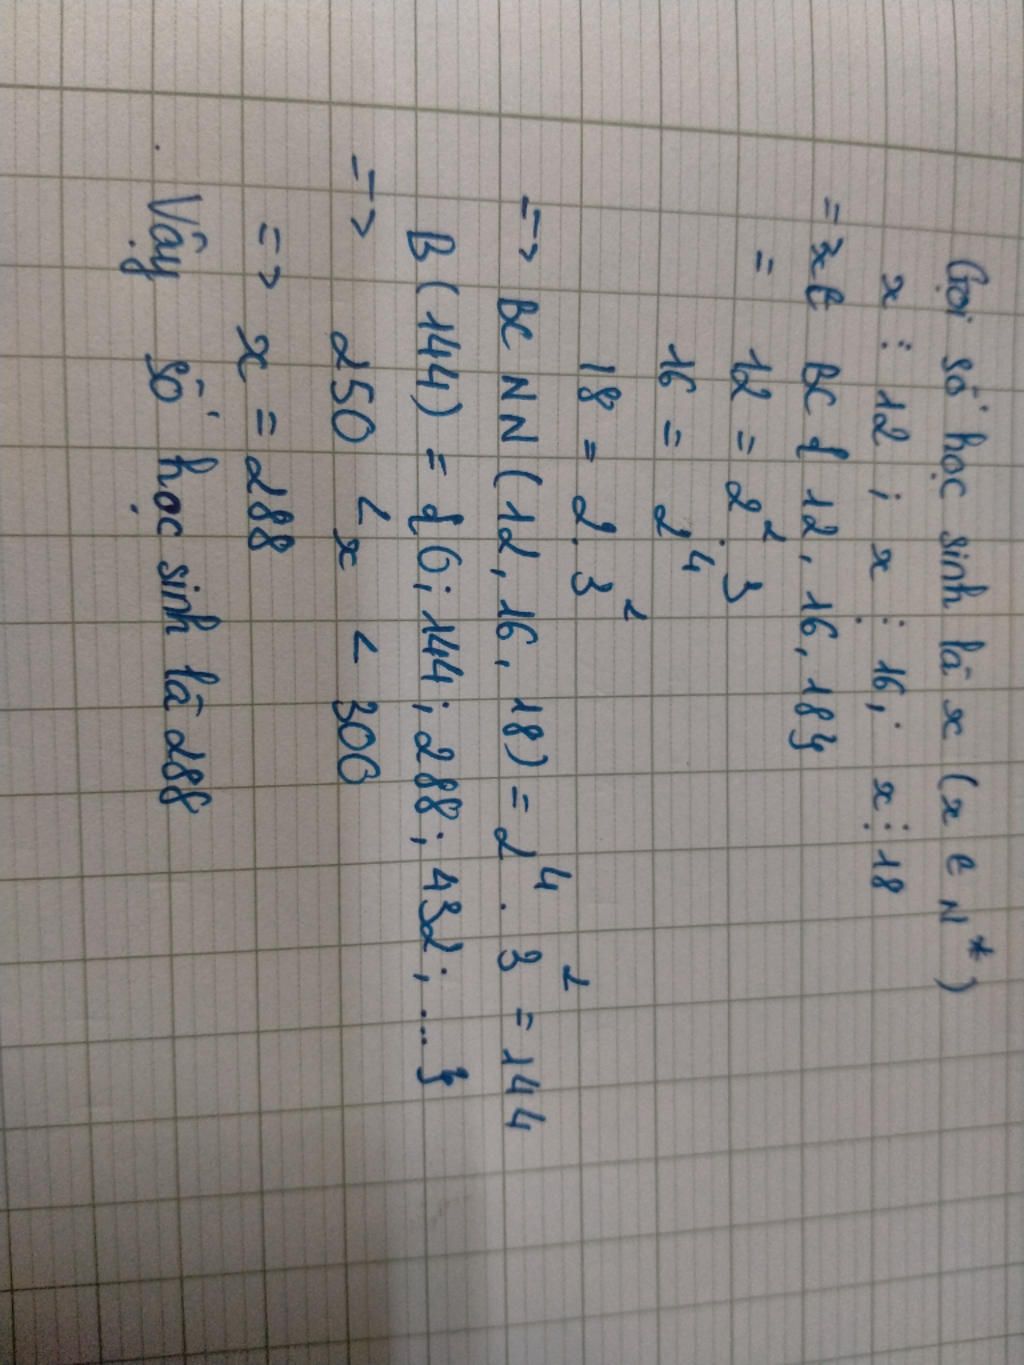 Gọi số học sinh là x (x ∈ N*)
x ⋮ 12 ; x ⋮ 16 ; x ⋮ 18
= x ∈ BC { 12, 16, 18}
= 12 = 2². 3
16 = 2⁴
18 = 2. 3²
=> BC NN (12, 16, 18) = 2⁴ . 3² = 144
B (144) = {0; 144 ; 288 ; 432 ; ...}
=> 250 < x < 300
=> x = 288
Vậy số học sinh là 288